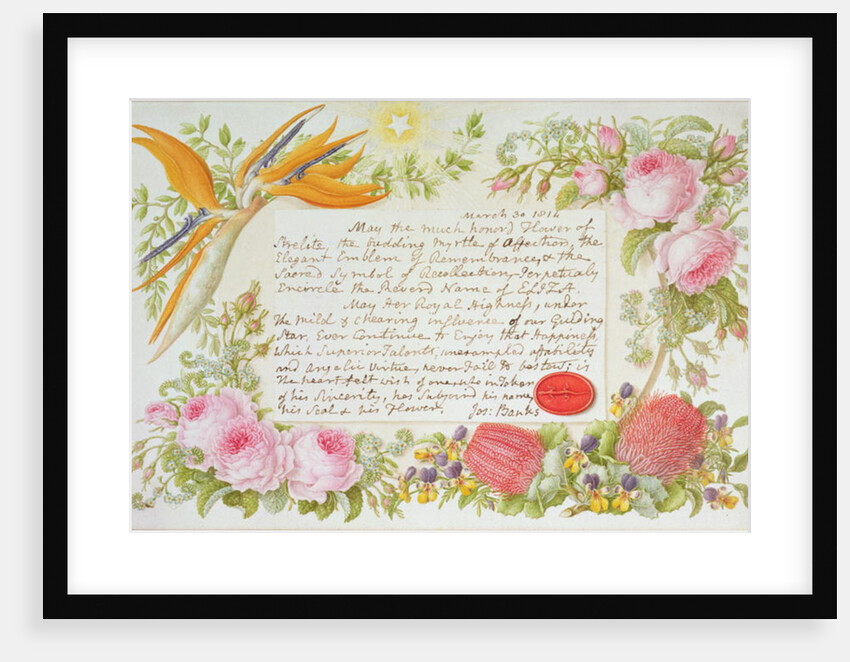 March 30 1814
May the much honord Flower of
Strelitz, the budding myrtle of Affection, the
Elegant Emblem of Remembrance, & the
Sacred Symbol of Recollection, Perpetualy
Encircle the Reverd Name of ELIZA.
May Her Royal Highness, under
the Mild & Chearing influence of our Guiding
Star, Ever Continue to Enjoy that Happiness,
Which Superior Talents, unexampled affability
and Angelic Virtue, never Fail to bestow; is
the heart felt wish of one, who in Token
of his Sincerity, has Subjoind his name,
his Seal & his Flower. Jos: Banks